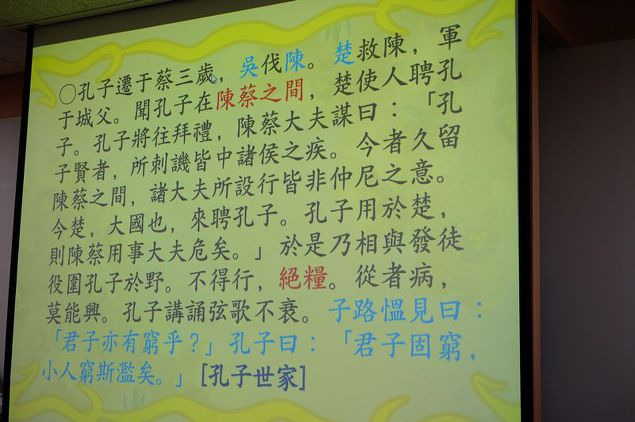 ○孔子遷于蔡三歲，吳伐陳。楚救陳，軍
于城父。聞孔子在陳蔡之間，楚使人聘孔
子。孔子將往拜禮，陳蔡大夫謀曰：「孔
子賢者，所刺譏皆中諸侯之疾。今者久留
陳蔡之間，諸大夫所設行皆非仲尼之意。
今楚，大國也，來聘孔子。孔子用於楚，
則陳蔡用事大夫危矣。」於是乃相與發徒
役圍孔子於野。不得行，絕糧。從者病，
莫能興。孔子講誦弦歌不衰。子路慍見曰：
「君子亦有窮乎？」孔子曰：「君子固窮，
小人窮斯濫矣。」[孔子世家]